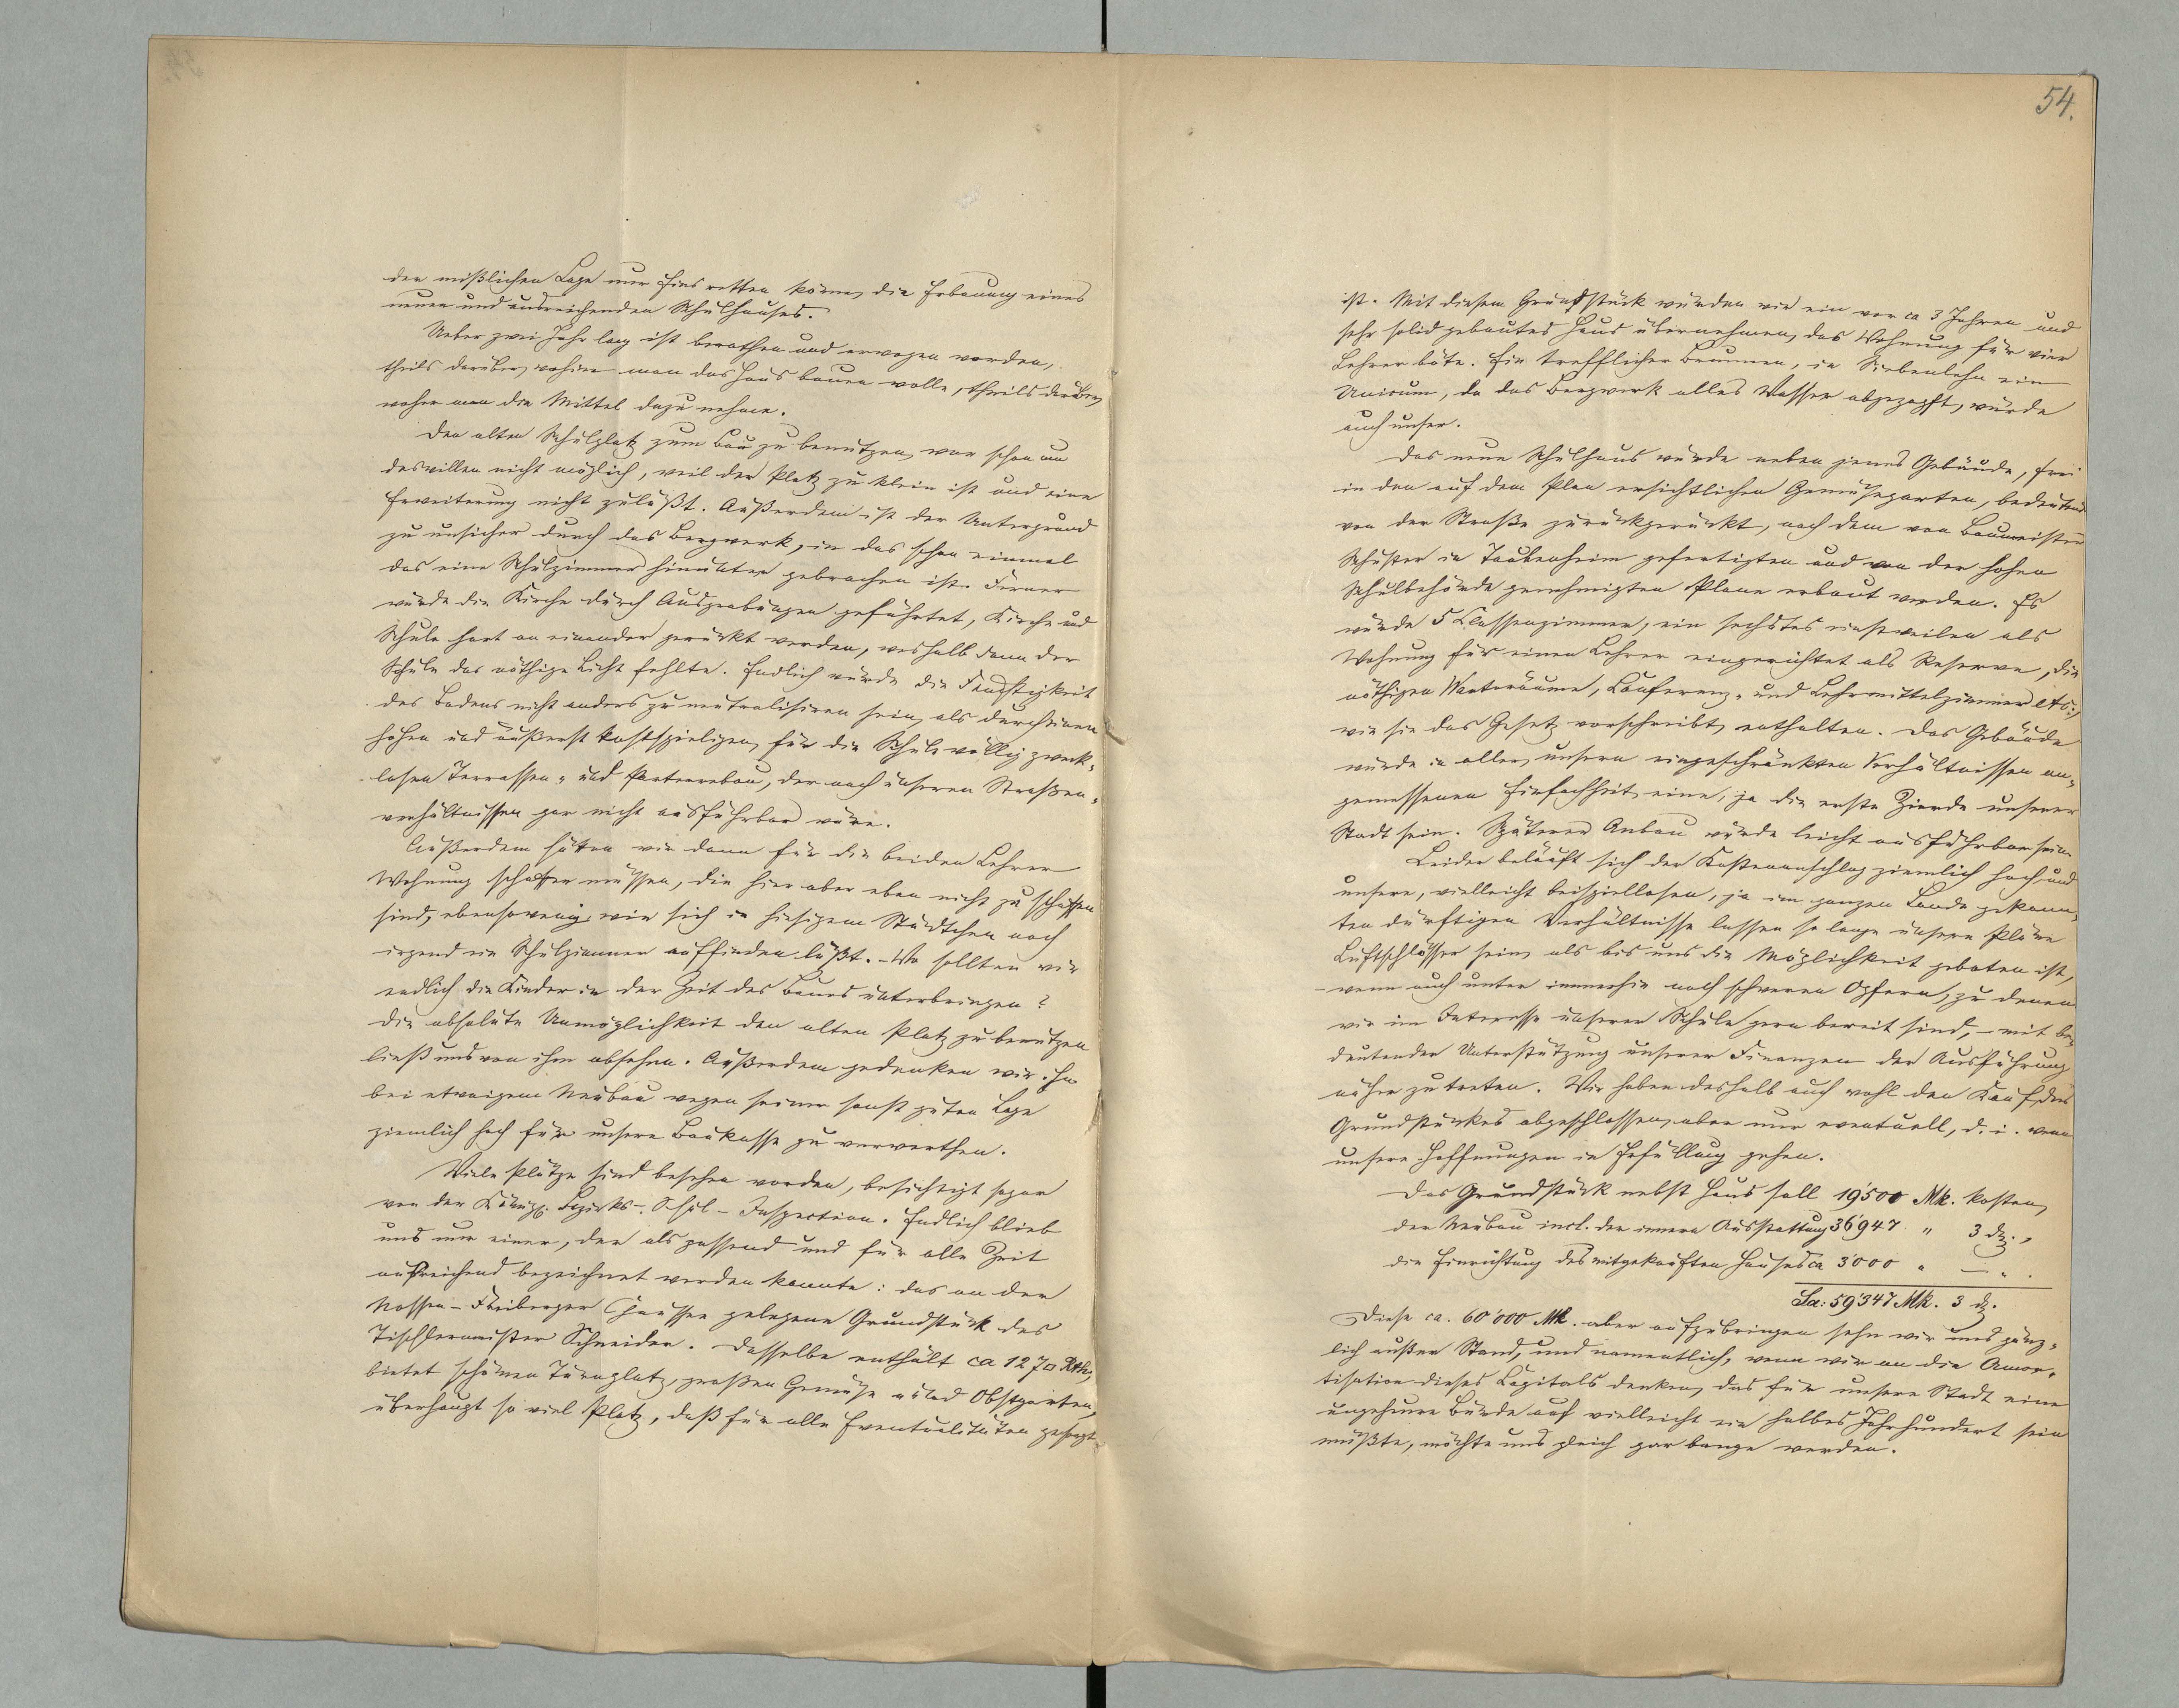 der mißlichen Lage nur Eins retten könne, die Erbauung eines
neuen und ausreichenden Schulhauses.
Ueber zwei Jahr lang ist berathen und erwogen worden,
theils darüber, wohin man das Haus bauen wolle, theils darüber,
woher man die Mittel dazu nehme.
Den alten Schulplatz zum Bau zu benutzen, war schon um
deswillen nicht möglich, weil der Platz zu klein ist und eine
Erweiterung nicht zuläßt. Außerdem ist der Untergrund
zu unsicher durch das Bergwerk, in das schon einmal
das eine Schulzimmer hinunter gebrochen ist. Ferner
würde die Kirche durch Ausgrabungen gefährdet, Kirche und
Schule hart an einander gerückt werden, weshalb dann der
Schule das nöthige Licht fehlte. Endlich würde die Feuchtigkeit
des Bodens nicht anders zu neutralisiren sein, als durch einen
hohen und äußerst kostspieligen, für die Schule völlig zweck-
losen Terrassen- und Parterrebau, der nach unseren Straßen-
verhältnissen gar nicht ausführbar wäre.
Außerdem hätten wir dann für die beiden Lehrer
Wohnung schaffen müssen, die hier aber eben nicht zu schaffen
sind, ebensowenig wie sich in hiesigem Städtchen noch
irgend ein Schulzimmer auffinden läßt. - Wo sollten wir
endlich die Kinder in der Zeit des Baues unterbringen?
Die absolute Unmöglichkeit den alten Platz zu benutzen
ließ uns von ihm absehen. Außerdem gedenken wir ihn
bei etwaigem Neubau wegen seiner sonst guten Lage
ziemlich hoch für unsere Baukasse zu verwerthen.
Viele Plätze sind besehen worden, besichtigt sogar
von der Königl. Bezirks-Schul-Inspection. Endlich blieb
uns nur einer, der als passend und für alle Zeit
ausreichend bezeichnet werden konnte: das an der
Nossen-Freiberger Chaussee gelegene Grundstück des
Tischlermeister Schneider. Dasselbe enthält ca 127 □ Rth.,
bietet schönen Turnplatz, großen Gemüse und Obstgarten,
überhaupt so viel Platz, daß für alle Eventualitäten gesorgt
54.
ist. Mit diesem Grundstück würden wir ein vor ca 3 Jahren und
sehr solid gebautes Haus übernehmen, das Wohnung für vier
Lehrer böte. Ein trefflicher Brunnen, in Siebenlehn ein
Unicum, da das Bergwerk alles Wasser abgezapft, würde
auch unser.
Das neue Schulhaus würde neben jenes Gebäude, frei
in den auf dem Plan ersichtlichen Gemüsegarten, bedeutend
von der Straße zurückgerückt, nach dem von Baumeister
Schuster in Taubenheim gefertigten und von der hohen
Schulbehörde genehmigten Plane erbaut werden. Es
würde 5 Classenzimmer, ein sechstes einstweilen als
Wohnung für einen Lehrer eingerichtet als Reserve, die
nöthigen Warteräume, Conferenz- und Lehrmittelzimmer etc.,
wie sie das Gesetz vorschreibt, enthalten. Das Gebäude
würde in aller, unsern eingeschränkten Verhältnissen an-
gemessenen Einfachheit eine, ja die erste Zierde unserer
Stadt sein. Späterer Anbau würde leicht ausführbar sein.
Leider beläuft sich der Kostenanschlag ziemlich hoch und
unsere, vielleicht beispiellosen, ja im ganzen Lande gekann-
ten dürftigen Verhältnisse lassen so lange unsere Pläne
Luftschlösser sein, als bis uns die Möglichkeit geboten ist,
- wenn auch unter immerhin noch schweren Opfern, zu denen
wir im Interesse unserer Schule gern bereit sind, - mit be-
deutender Unterstützung unserer Finanzen der Ausführung
näher zu treten. Wir haben deshalb auch wohl den Kauf des
Grundstückes abgeschlossen, aber nur eventuell, d. i. wenn
unsere Hoffnungen in Erfüllung gehen.
Das Grundstück nebst Haus soll 19'500 Mk. kosten,
der Neubau incl. der innern Ausstattung 36'947 " 3 d.,
die Einrichtung des mitgekauften Hauses ca 3'000 " — ".
Sa: 59'347 Mk. 3 d.
Diese ca. 60'000 Mk. aber aufzubringen sehn wir uns gänz-
lich außer Stand, und namentlich, wenn wir an die Amor-
tisation dieses Capitals denken, das für unsere Stadt eine
ungeheure Bürde auf vielleicht ein halbes Jahrhundert sein
müßte, möchte uns gleich gar bange werden.